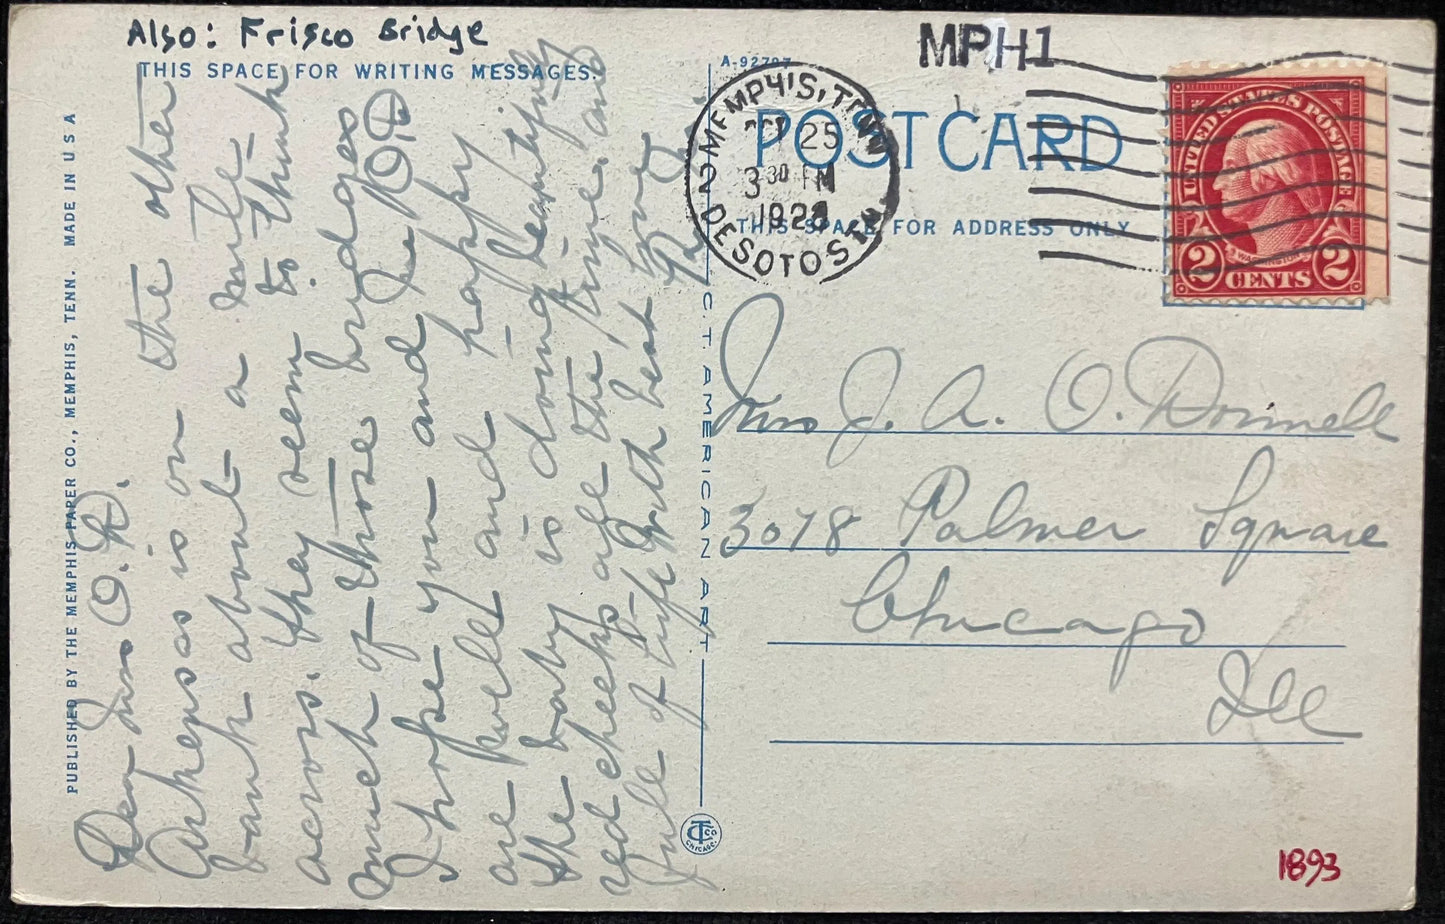 Also: Frisco Bridge
THIS SPACE FOR WRITING MESSAGES.
A-92797
Dear Mrs O. D.
Arkensas is on the other
bank about a mile
across. they seem to think
much of those bridges
I hope you and Mr O D.
are well and happy
the baby is doing beautifully
red cheeks all the time, and
full of life with best love
PUBLISHED BY THE MEMPHIS PAPER CO., MEMPHIS, TENN. MADE IN U S A
C.T. AMERICAN ART
CT CO
CHICAGO.
MPH1
MEMPHIS, TENN.
2
OCT 25
3 30 PM
1928
DESOTO STA.
POST CARD
THIS SPACE FOR ADDRESS ONLY
UNITED STATES POSTAGE
WASHINGTON
2 CENTS 2
Mrs J. A. O. Donnell
3078 Palmer Square
Chicago
Ill
1893